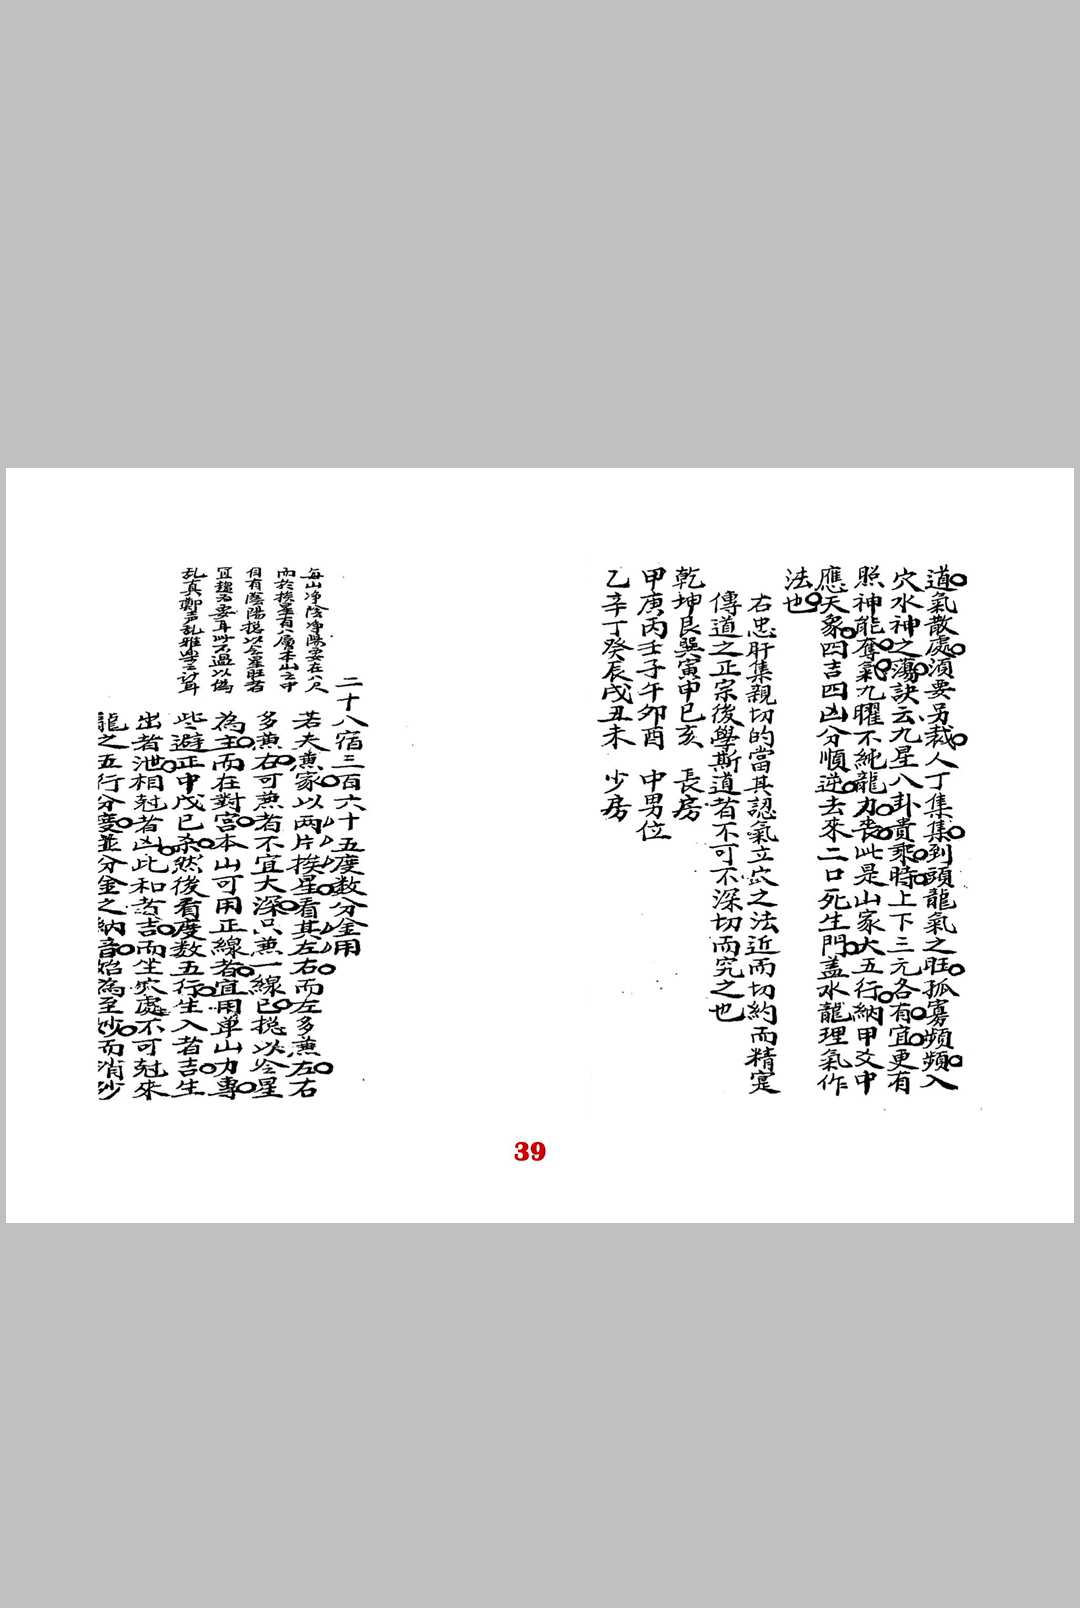 道氣散處須要另裁人丁集集到頭龍氣之旺孤寡頻頻入
穴水神之蕩訣云九星八卦貴乘時上下三元各有宜更有
照神能奪氣九曜不純龍力喪此是山家大五行納甲爻中
應天象四吉四凶分順逆去來二口死生門盖水龍理氣作
法也
右忠肝集親切的當其認氣立穴之法近而切約而精寔
傳道之正宗後學斯道者不可不深切而究之也
乾坤艮巽寅申巳亥 長房
甲庚丙壬子午卯酉 中男位
乙辛丁癸辰戌丑未 少房
每山净陰净陽要在八尺
而於挨星有八屬本山之中
但有陰陽總以令星旺者
宜 為要耳 不過以偽
乱真鄭声乱雅樂之 耳
二十八宿三百六十五度数分金用
若夫兼家以两片挨星看其左右而左多兼左右
多兼右可兼者不宜大深只兼一線已摠以令星
為主而在對宮本山可用正線者宜用单山力專
些避正中戊已杀然後看度数五行生入者吉生
出者泄相尅者凶比和者吉而坐穴處不可尅來
龍之五行分度並分金之納音始為至妙而消沙
39